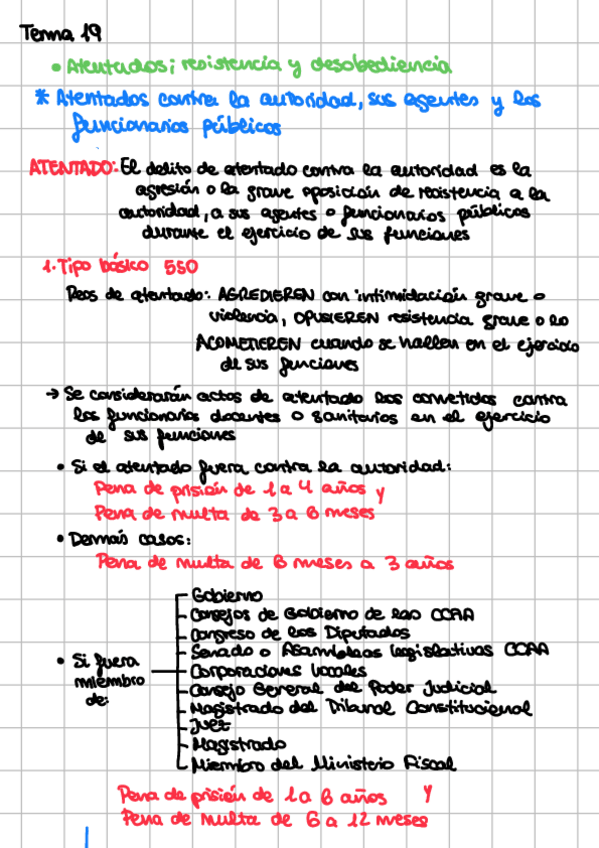 Tema 19
• Atentados; resistencia y desobediencia
* Atentados contra la autoridad, sus agentes y los
funcionarios públicos
ATENTADO: El delito de atentado contra la autoridad es la
agresión o la grave oposición de resistencia a la
autoridad, a sus agentes o funcionarios públicos
durante el ejercicio de sus funciones
1. Tipo básico 550
Reos de atentado: AGREDIEREN con intimidación grave o
violencia, OPUSIEREN resistencia grave o lo
ACOMETIEREN cuando se hallen en el ejercicio
de sus funciones
→ Se considerarán actos de atentado los cometidos contra
los funcionarios docentes o sanitarios en el ejercicio
de sus funciones
• Si el atentado fuera contra la autoridad:
Pena de prisión de 1 a 4 años y
Pena de multa de 3 a 6 meses
• Demás casos:
Pena de multa de 6 meses a 3 años
• Si fuera
miembro
de:
- Gobierno
- Consejos de Gobierno de las CCAA
- Congreso de los Diputados
- Senado o Asambleas legislativas CCAA
- Corporaciones locales
- Consejo General del Poder Judicial
- Magistrado del Tribunal Constitucional
- Juez
- Magistrado
- Miembro del Ministerio Fiscal
Pena de prisión de 1 a 6 años Y
Pena de multa de 6 a 12 meses